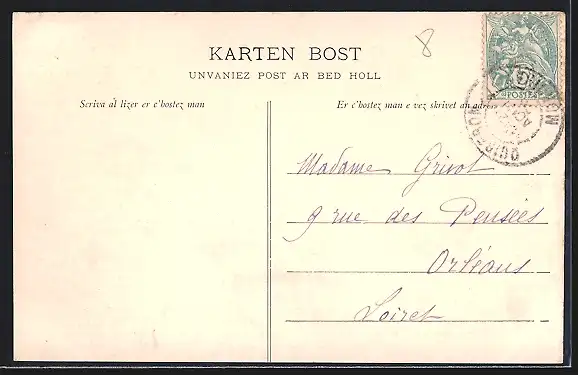 8
KARTEN BOST
UNVANIEZ POST AR BED HOLL
Scriva al lizer er c'hostez man
Er c'hostez man e vez skrivet an adress
POSTES
QUIBERON
MORBIHAN
Madame Grivot
9 rue des Pensées
Orléans
Loiret